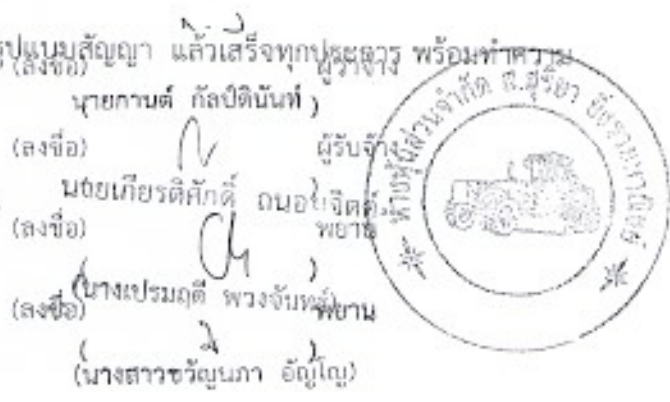 รูปแบบสัญญา แล้วเสร็จทุกประการ พร้อมทำความ
(ลงชื่อ) ผู้ว่าจ้าง
นายกานต์ กัลป์ตินันท์ )
(ลงชื่อ) ผู้รับจ้าง
นายเกียรติศักดิ์ ถนอมจิตต์ )
(ลงชื่อ) พยาน
(นางเปรมฤดี พวงจันทร์)
(ลงชื่อ) พยาน
(นางสาวขวัญนภา อัญโญ)
ห้างหุ้นส่วนจำกัด ส.สุริยา